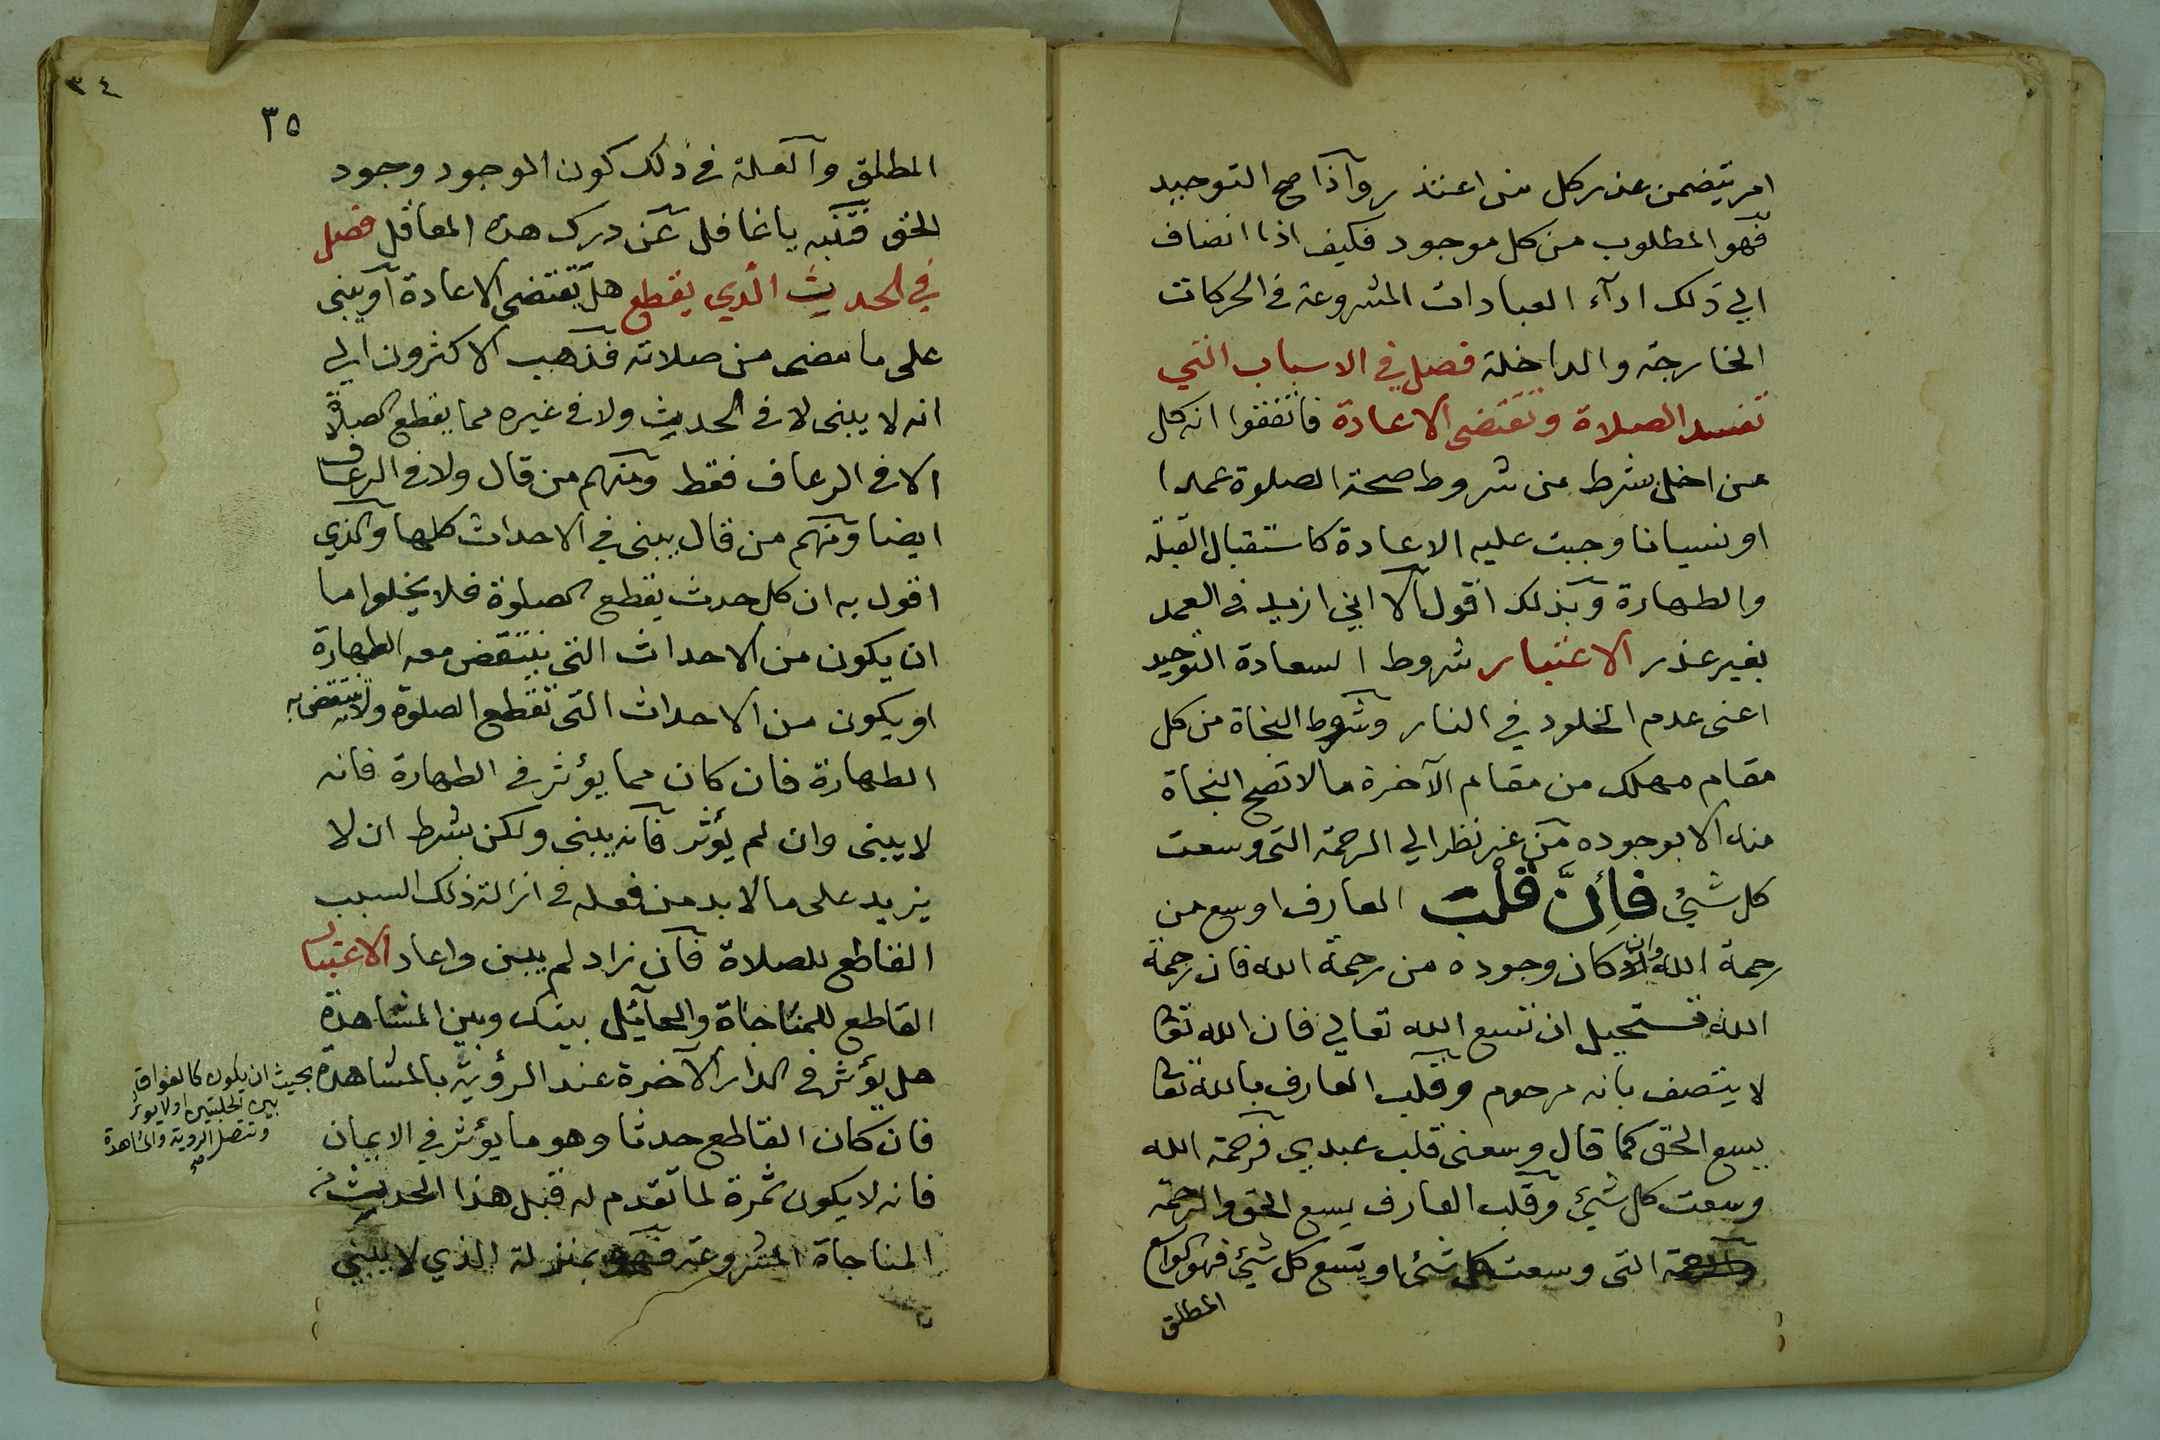 امر يتضمن عذر كل من اعتذر وآذا صح التوحيد
فهو المطلوب من كل موجود فكيف اذا انضاف
الي ذلك ادآء العبادات المشروعة في الحركات
الخارجة والداخلة فصل في الاسباب التي
تفسد الصلاة وتقتضى الاعادة فاتفقوا ان كل
من اخل بشرط من شروط صحة الصلوة عمدا
او نسيانا وجبت عليه الاعادة كاستقبال القبلة
والطهارة وبذلك اقول الا اني ازيد في العمد
بغير عذر الاعتبار شروط السعادة التوحيد
اعنى عدم الخلود في النار وشروط النجاة من كل
مقام مهلك من مقام الآخرة ما لا تصح النجاة
منه الا بوجوده من غير نظر الي الرحمة التى وسعت
كل شيئ فأنّ قلبَ العارف اوسع من
رحمة الله وان كان وجوده من رحمة الله فان رحمة
الله تستحيل ان تسع الله تعالي فان الله تعا
لا يتصف بانه مرحوم وقلب العارف بالله تعا
يسع الحق كما قال وسعنى قلب عبدي فرحمة الله
وسعت كل شيئ وقلب العارف يسع الحق والرحمة
التى وسعت كل شئ او يتسع كل شيئ فهو كواسع
المطلق
٣٤
٣٥
المطلق وآلعلة في ذلك كون الوجود وجود
الحق فتنبه يا غافل عن درك هذه المعاقل فصل
في الحديث الذي يقطع هل يقتضى الاعادة آو يبنى
على ما مضى من صلاته فذهب الاكثرون الي
انه لا يبنى لا في الحديث ولا في غيره مما يقطع الصلاة
الا في الرعاف فقط ومنهم من قال ولا في الرعاف
ايضا ومنهم من قال يبنى في الاحداث كلها والذي
اقول به ان كل حدث يقطع الصلوة فلا يخلوا ما
ان يكون من الاحداث التى ينتقض معه الطهارة
او يكون من الاحداث التى تقطع الصلوة ولا ينتقض به
الطهارة فان كان مما يؤثر في الطهارة فانه
لا يبنى وان لم يؤثر فآنه يبنى ولكن بشرط ان لا
يزيد على ما لا بد من فعله في ازالة ذلك السبب
القاطع للصلاة فآن زاد لم يبن واعاد الاعتبار
القاطع للمناجاة والحآئل بينك وبين المشاهدة
هل يؤثر في الدار الآخرة عند الرؤية بالمشاهدة
بحيث ان يكون كالفواق
بين تجليتين او لا يوثر
وتتصل الروية والمشاهدة
صح
فان كان القاطع حدثا وهو ما يؤثر في الايمان
فانه لا يكون ثمرة لما تقدم له قبل هذا الحديث من
المناجاة المشروعة فهو بمنزلة الذي لا يبنى